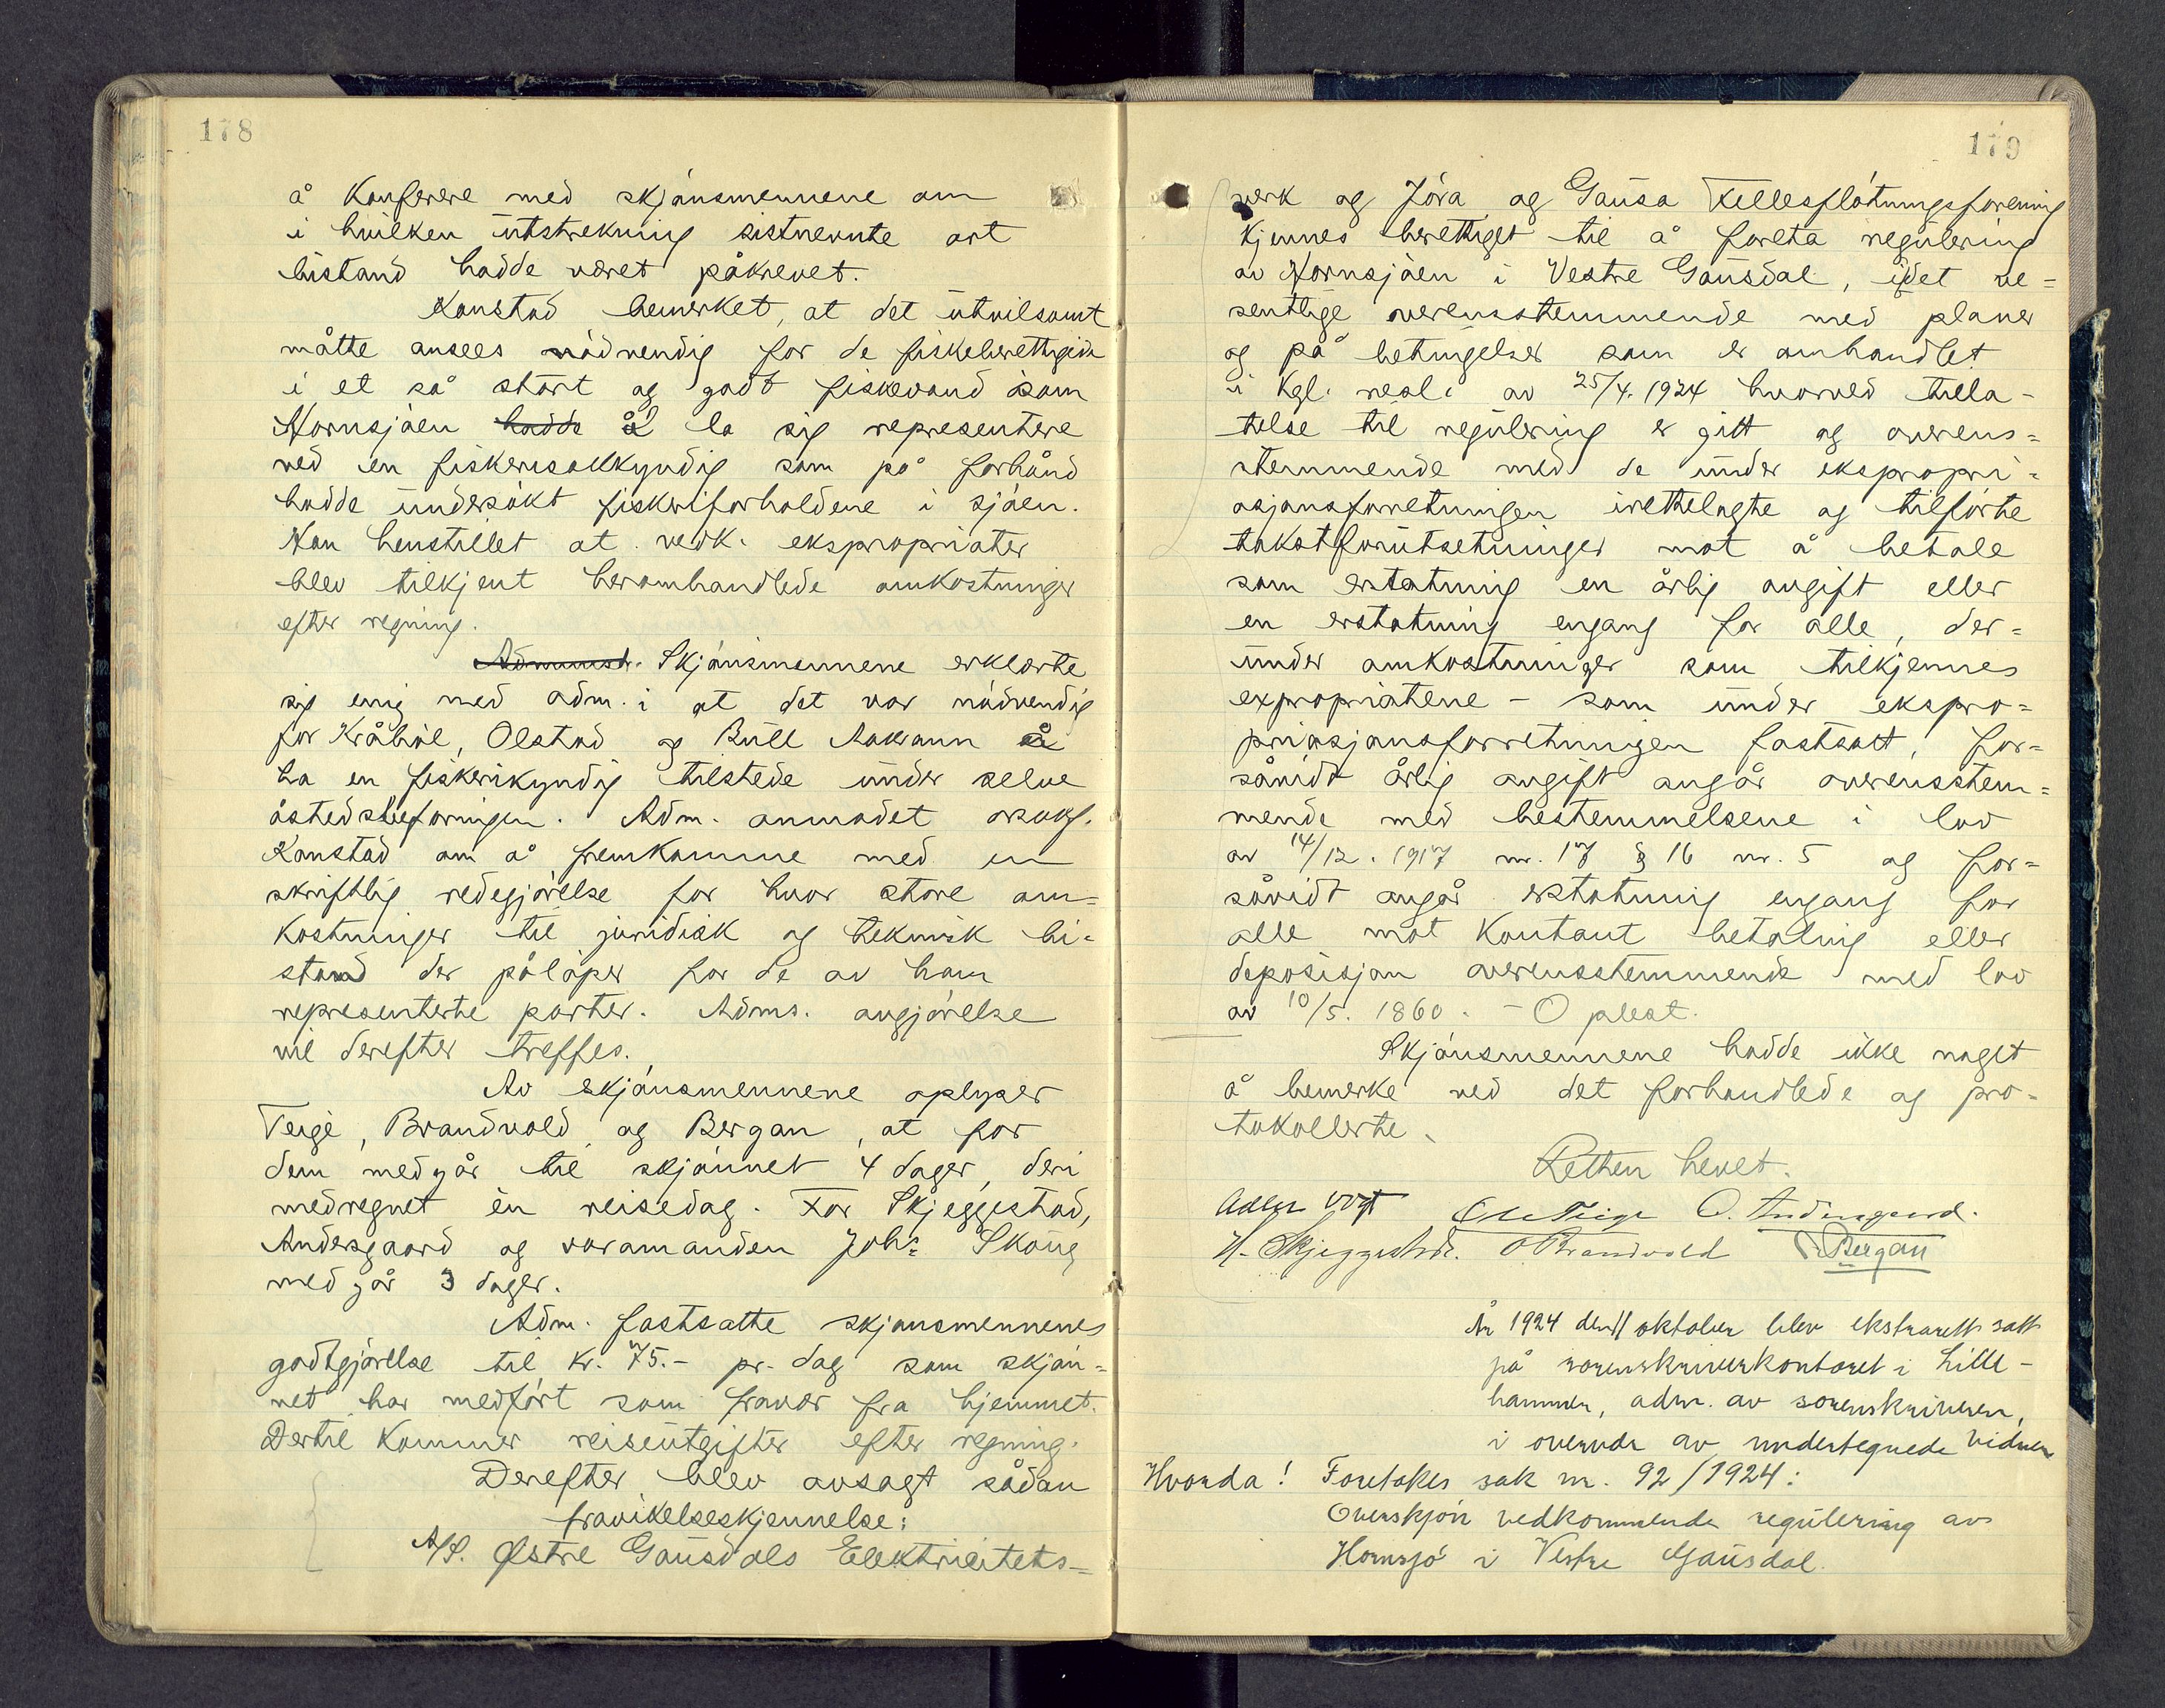 178
å konferere med skjønsmennene om
i hvilken utstrekning sistnevnte art
bistand hadde været påkrevet.
Konstad bemerket, at det utvilsomt
måtte ansees nødvendig for de fiskeberettigede
i et så stort og godt fiskevand som
Hornsjøen hadde å la sig representere
ved en fiskerisakkyndig som på forhånd
hadde undersøkt fiskeriforholdene i sjøen.
Han henstillet at vedk. ekspropriater
blev tilkjent heromhandlede omkostninger
efter regning.
Administr. Skjønsmennene erklærte
sig enig med adm. i at det var nødvendig
for Kråbøl, Olstad og Bull Aakrann å
ha en fiskerikyndig tilstede under selve
åstedsbefaringen. Adm. anmodet orsakf.
Konstad om å fremkomme med en
skriftlig redegjørelse for hvor store om=
kostninger til juridisk og teknisk bi=
stand der påløper for de av ham
representerte parter. Adms. avgjørelse
vil derefter treffes.
Av skjønsmennene oplyser
Teige, Brandvold og Bergan, at for
dem medgår til skjønnet 4 dager, deri
medregnet én reisedag. For Skjeggestad,
Andersgaard og varamanden Johs. Skoug
medgår 3 dager.
Adm. fastsatte skjønsmennenes
godtgjørelse til kr. 75.- pr. dag som skjøn=
net har medført som fravær fra hjemmet.
Dertil kommer reiseutgifter efter regning.
Derefter blev avsagt sådan
fravikelseskjennelse:
A/S. Østre Gausdals Elektricitets=
179
verk og Jøra og Gausa Fellesfløtningsforening
kjennes berettiget til å foreta regulering
av Hornsjøen i Vestre Gausdal, idet ve=
sentlige overensstemmende med planer
og på betingelser som er omhandlet
i kgl. resl. av 25/4. 1924 hvorved tilla-
telse til regulering er gitt og overens=
stemmende med de under ekspropri=
asjonsforretningen irettelagte og tilførte
takstforutsetninger mot å betale
som erstatning en årlig avgift eller
en erstatning engang for alle, der=
under omkostninger som tilkjennes
expropriatene - som under ekspro=
priasjonsforretningen fastsatt, for=
såvidt årlig avgift angår overensstem=
mende med bestemmelsene i lov
av 14/12. 1917 nr. 17 § 16 nr. 5 og for=
såvidt angår erstatning engang for
alle mot kontant betaling eller
deposisjon overensstemmende med lov
av 10/5. 1860. - Oplest.
Skjønsmennene hadde ikke noget
å bemerke ved det forhandlede og pro=
tokollerte.
Retten hevet.
Adler Vogt Ole Teige O. Andersgaard.
H. Skjeggestad. O Brandvold Bergan
År 1924 den 11 oktober blev ekstrarett satt
på sorenskriverkontoret i Lille-
hammer, adm. av sorenskriveren,
i overvær av undertegnede vidner
Hvorda! Foretokes sak nr. 92/1924:
Overskjøn vedkommende regulering av
Hornsjø i Vestre Gausdal.